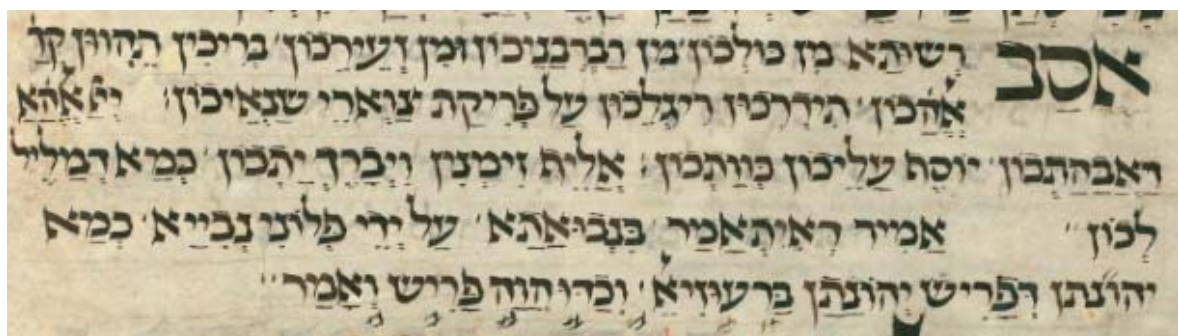 אסב רשותא מן כולכון מן רברבניכון ומן זעירכון בריכין תהוון קד
אלהכון תידרכון ריגלכון על פריקת צוארי שנאיכון׃ אלהא
דאבהתכון יוסף עליכון כוותכון׃ אליף זימנין ויברך יתכון כמא דמליל
לכון אמיר דאיתאמר בנבואתא על ידי פלוני נבייא כמא
יהונתן דפריש יהונתן בר עוזיא וכדו הוה פריש ואמר